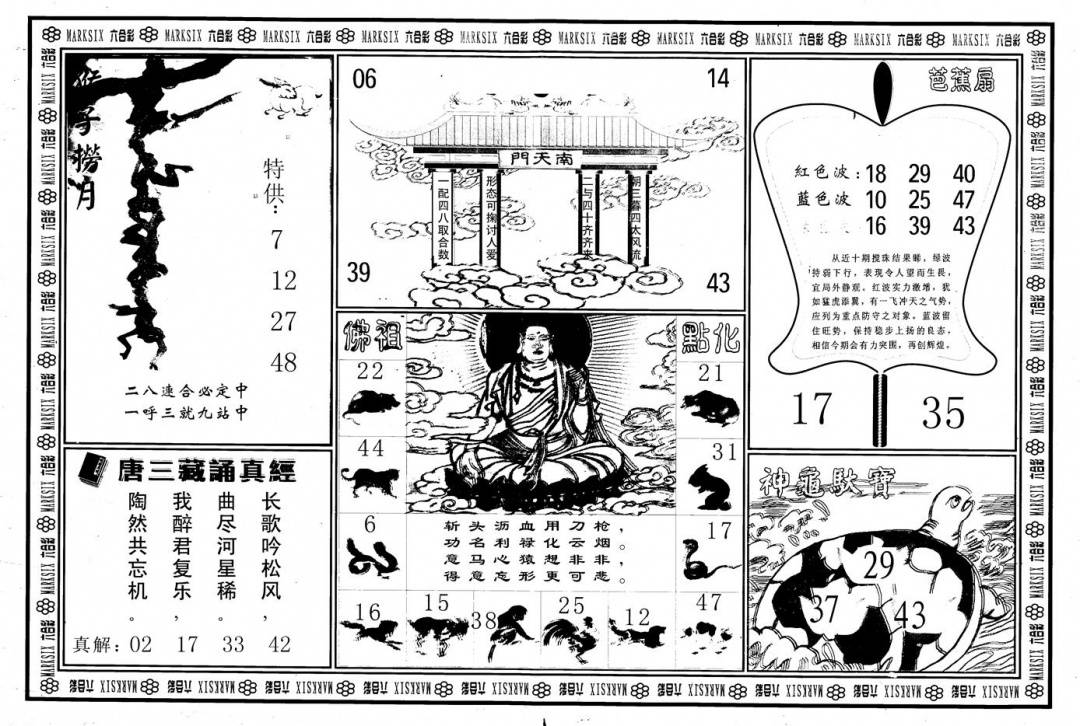 MARKSIX 六合彩 MARKSIX 六合彩 MARKSIX 六合彩 MARKSIX 六合彩 MARKSIX 六合彩 MARKSIX 六合彩 MARKSIX 六合彩 MARKSIX 六合彩 MARKSIX 六合彩 MARKSIX 六合彩
猴子撈月
特供：
7
12
27
48
二八連合必定中
一呼三就九站中
06
14
南天門
一配四八取合数
形态可掬讨人爱
二与四十齐齐来
朝三暮四太风流
39
43
芭蕉扇
紅色波：18 29 40
蓝色波 10 25 47
16 39 43
从近十期搅珠结果睇，绿波
特弱下行，表现令人望而生畏，
宜局外静观。红波实力激增，犹
如猛虎添翼，有一飞冲天之气势，
应列为重点防守之对象。蓝波留
住旺势，保持稳步上扬的良态，
相信今期会有力突围，再创辉煌。
17
35
唐三藏誦真經
长歌吟松风，
曲尽河星稀。
我醉君复乐，
陶然共忘机。
真解：02 17 33 42
佛祖
點化
22
21
44
31
6
17
斩头沥血用刀枪，
功名利禄化云烟。
意马心猿想非非，
得意忘形更可悲。
16
15
38
25
12
47
神龜馱寶
29
37
43
MARKSIX 六合彩 MARKSIX 六合彩 MARKSIX 六合彩 MARKSIX 六合彩 MARKSIX 六合彩 MARKSIX 六合彩 MARKSIX 六合彩 MARKSIX 六合彩 MARKSIX 六合彩 MARKSIX 六合彩